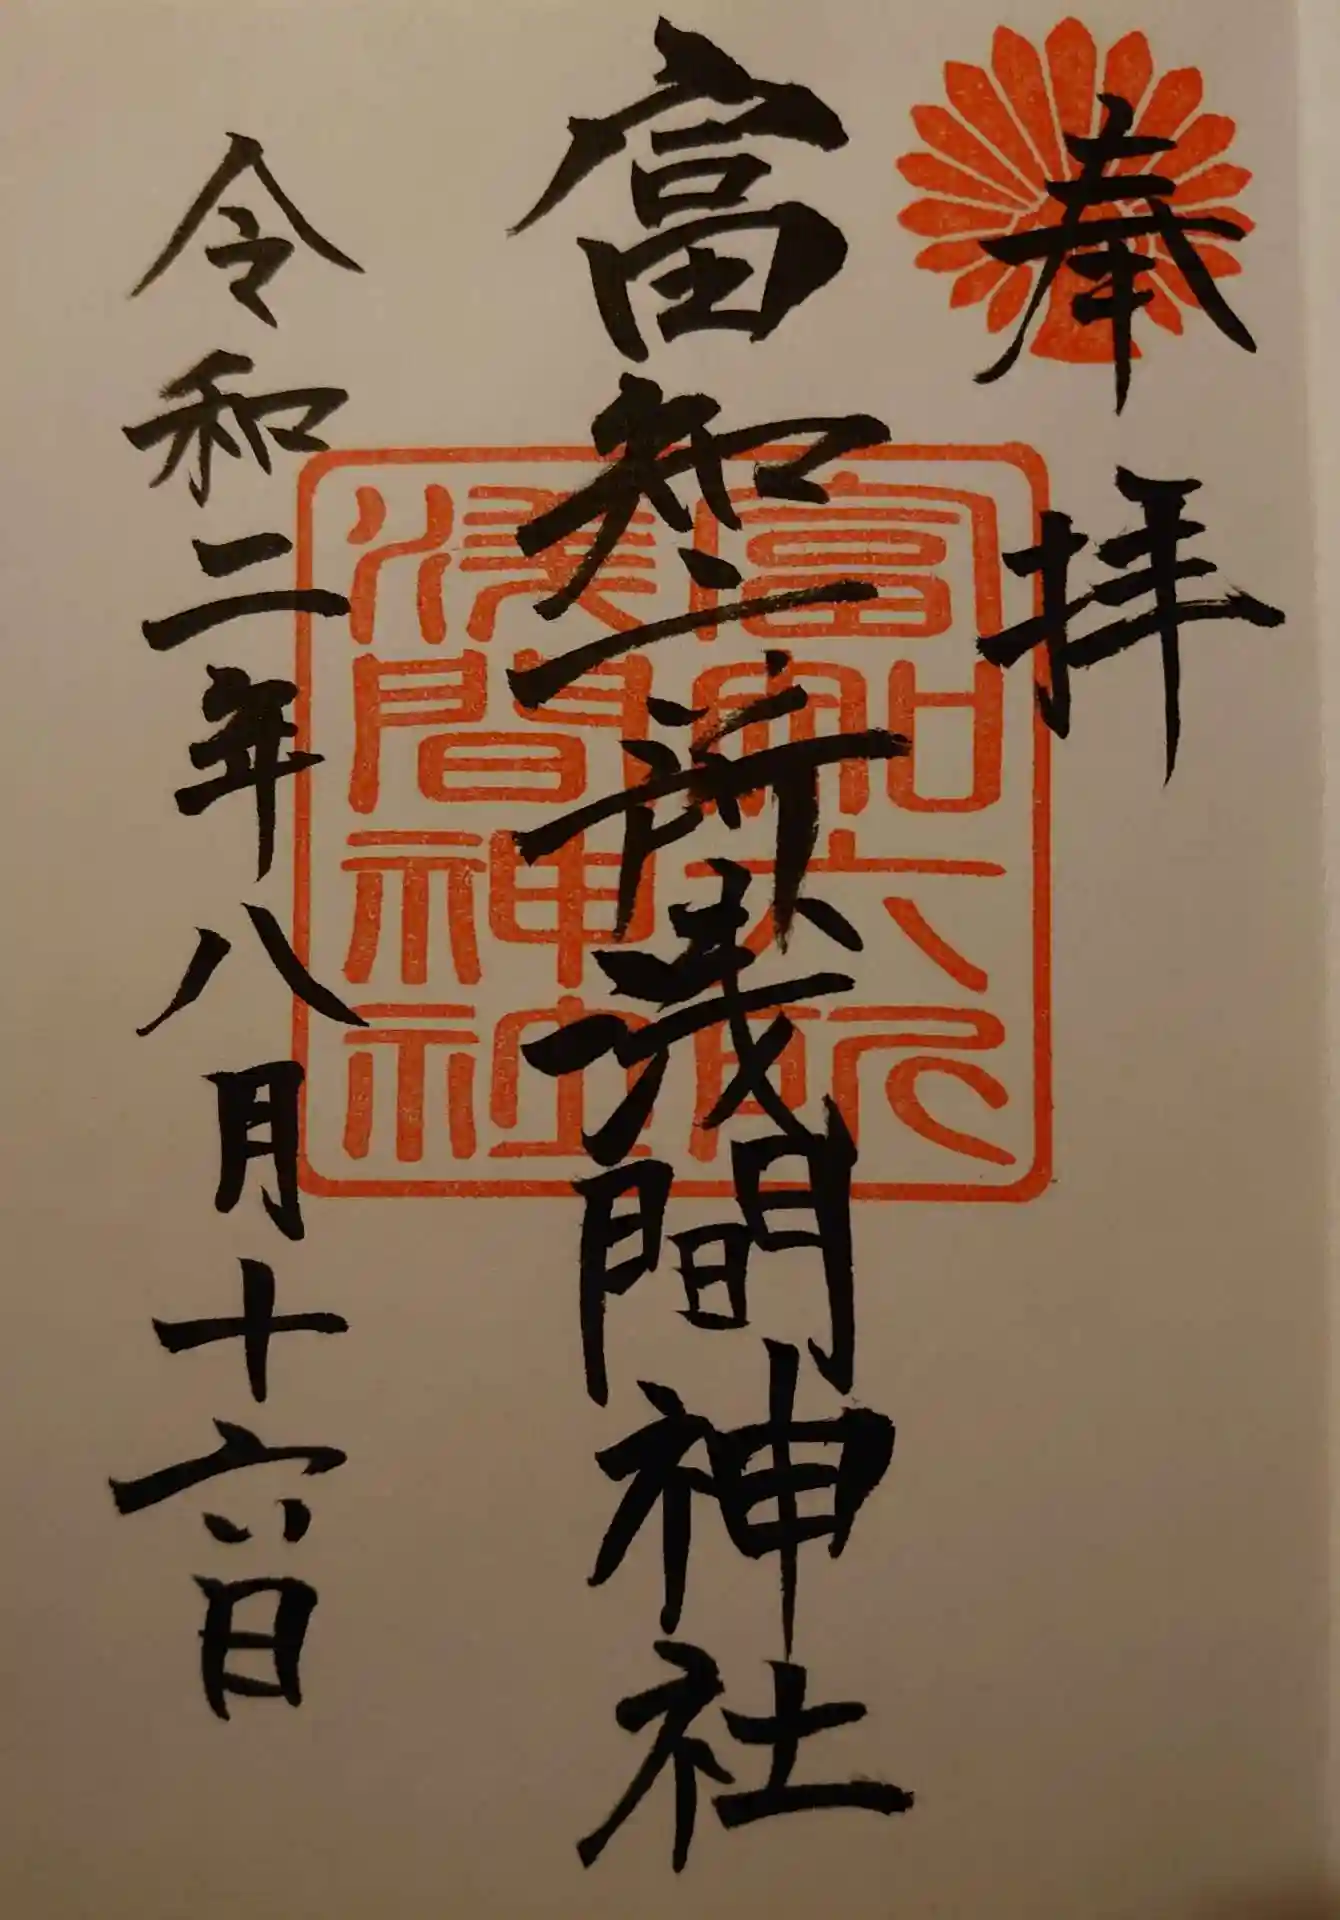 奉拝
富知六所浅間神社
富知六所
淺間神社
令和二年八月十六日